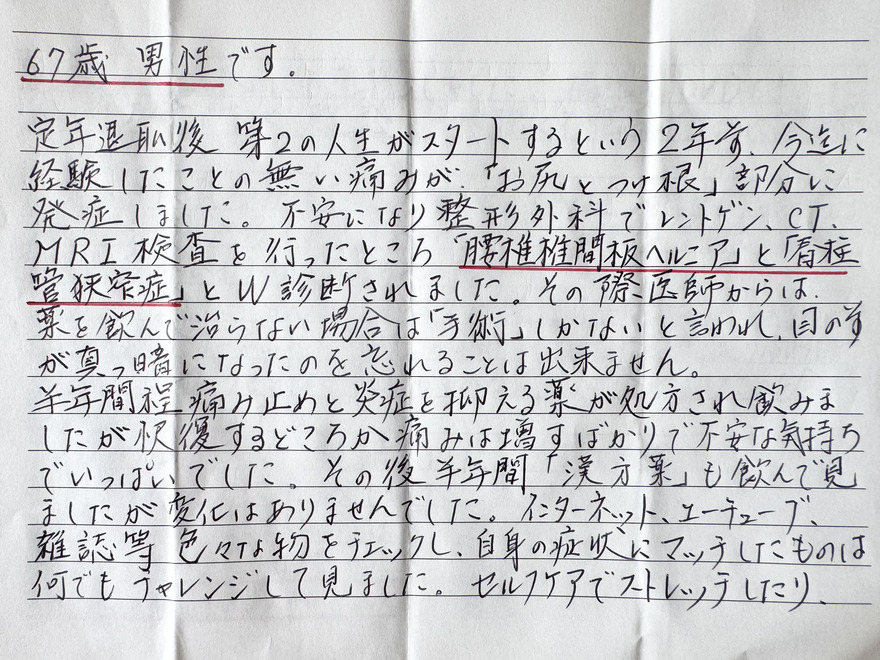 67歳 男性です。
定年退職後 第2の人生がスタートするという 2年前、今迄に
経験したことの無い痛みが、「お尻とつけ根」部分に
発症しました。不安になり整形外科でレントゲン、CT、
MRI検査を行ったところ「腰椎椎間板ヘルニア」と「脊柱
管狭窄症」とW診断されました。その際医師からは、
薬を飲んで治らない場合は「手術」しかないと言われ、目の前
が真っ暗になったのを忘れることは出来ません。
半年間程痛み止めと炎症を抑える薬が処方され飲みま
したが快復するどころか痛みは増すばかりで不安な気持ち
でいっぱいでした。その後半年間「漢方薬」も飲んで見
ましたが変化はありませんでした。インターネット、ユーチューブ、
雑誌等色々な物をチェックし、自身の症状にマッチしたものは
何でもチャレンジして見ました。セルフケアでストレッチしたり、